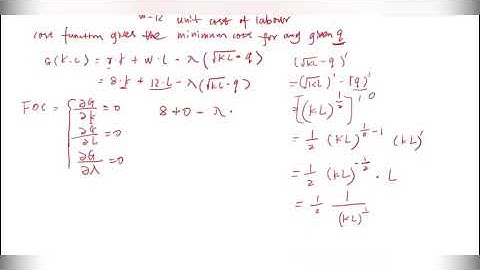 w=12 unit cost of labour
cost function gives the minimum cost for any given q
G(K.L) = r.k + w.L - λ(√KL - q)
= 8.k + 12.L - λ(√KL - q)
FOC = { ∂G/∂k = 0
∂G/∂L = 0
∂G/∂λ = 0
8 + 0 - λ .
(√KL - q)'
= (√KL)' - (q)'
= [(KL)^½]' , 0
= ½ (KL)^½-1 (KL)'
= ½ (KL)^-½ . L
= ½ 1/(KL)^½